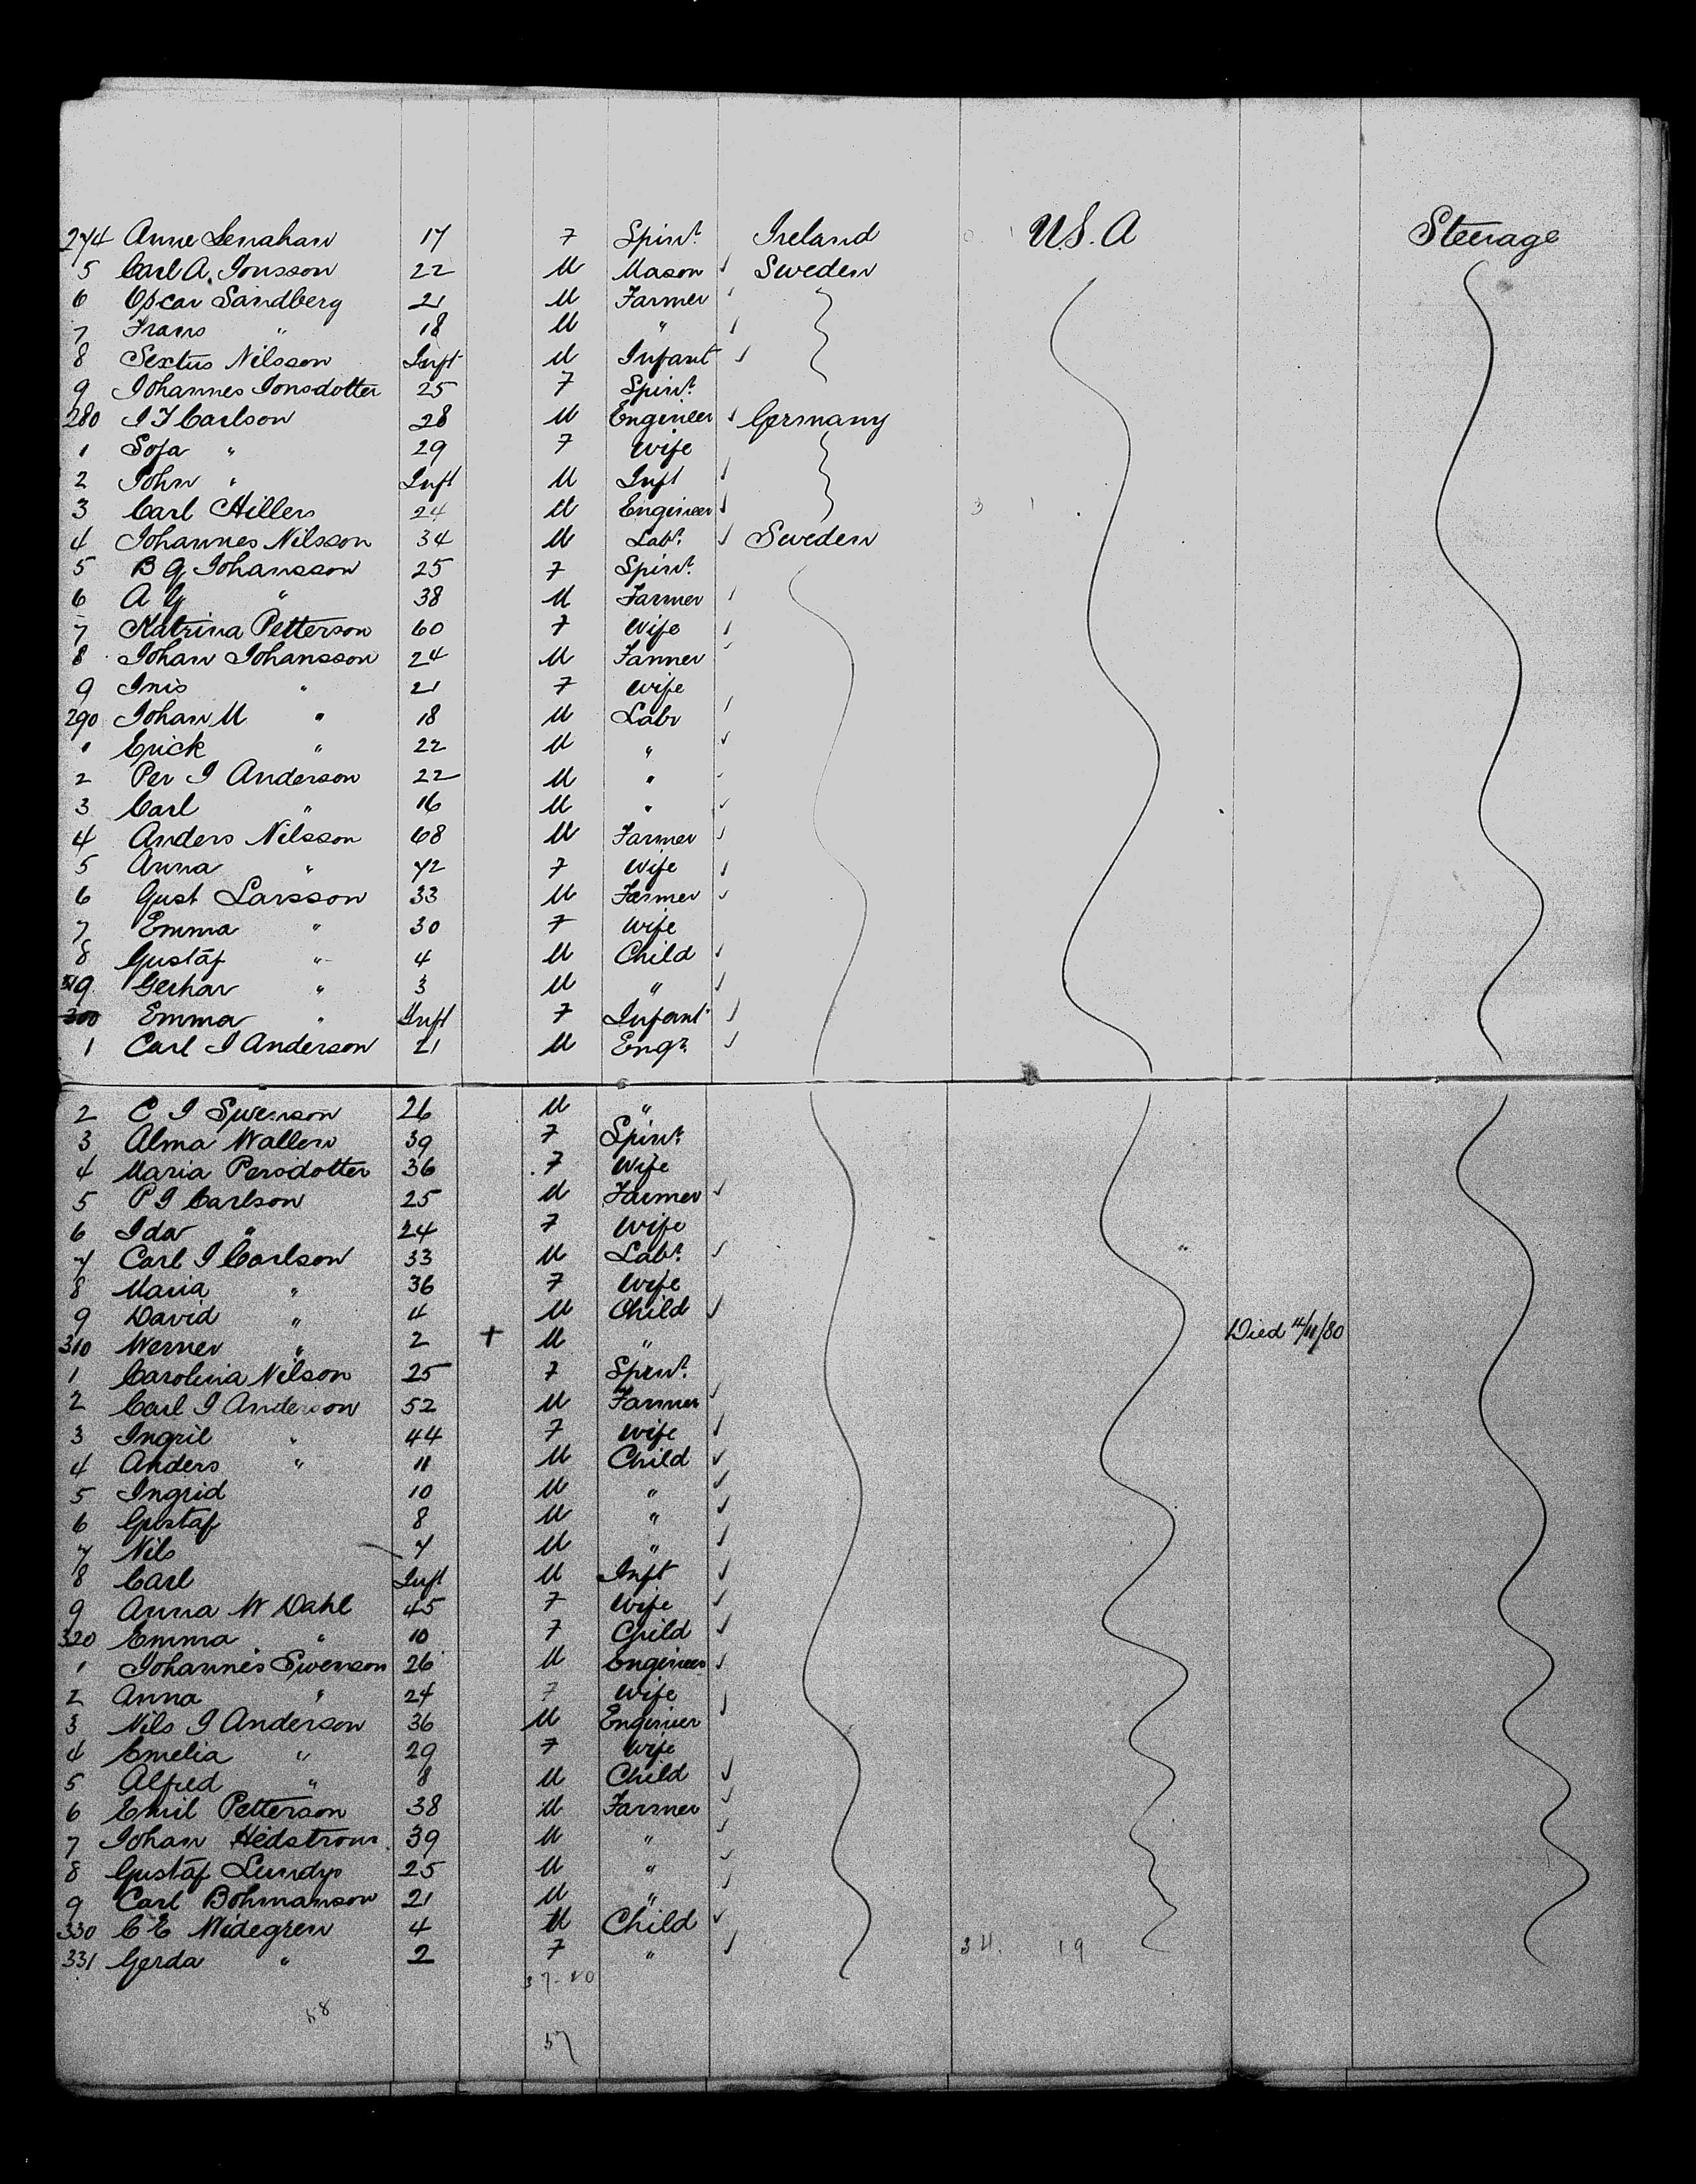 274 Anne Lenahan 17 F Spinr Ireland U.S.A Steerage
5 Carl A. Jonsson 22 M Mason Sweden
6 Oscar Sandberg 21 M Farmer
7 Frans " 18 M "
8 Sextus Nilsson Inft M Infant
9 Johannes Jonsdotter 25 F Spinr
280 J F Carlson 28 M Engineer Germany
1 Sofa " 29 F Wife
2 John " Inft M Inft
3 Carl Hillers 24 M Engineer
4 Johannes Nilsson 34 M Labr Sweden
5 B G Johansson 25 F Spinr
6 A G " 38 M Farmer
7 Katrina Petterson 60 F Wife
8 Johan Johansson 24 M Farmer
9 Inis " 21 F Wife
290 Johan M " 18 M Labr
1 Erick " 22 M "
2 Per J Anderson 22 M "
3 Carl " 16 M "
4 Anders Nilsson 68 M Farmer
5 Anna " 72 F Wife
6 Gust Larsson 33 M Farmer
7 Emma " 30 F Wife
8 Gustaf " 4 M Child
9 Gerhar " 3 M "
300 Emma " Inft F Infant
1 Carl J Anderson 21 M Engr
2 C J Swenson 26 M "
3 Alma Wallen 39 F Spinr
4 Maria Persdotter 36 F Wife
5 P J Carlson 25 M Farmer
6 Ida " 24 F Wife
7 Carl J Carlson 33 M Labr
8 Maria " 36 F Wife
9 David " 4 M Child
310 Werner " 2 + M " Died 4/11/80
1 Carolina Nilson 25 F Spinr
2 Carl J Anderson 52 M Farmer
3 Ingril " 44 F Wife
4 Anders " 11 M Child
5 Ingrid 10 M "
6 Gustaf 8 M "
7 Nils 7 M "
8 Carl Inft M Inft
9 Anna W Dahl 45 F Wife
320 Emma " 10 F Child
1 Johannes Swenson 26 M Engineer
2 Anna " 24 F Wife
3 Nils J Anderson 36 M Engineer
4 Emelia " 29 F Wife
5 Alfred " 8 M Child
6 Emil Petterson 38 M Farmer
7 Johan Hedstrom 39 M "
8 Gustaf Lundys 25 M "
9 Carl Bohmanson 21 M "
330 C E Widegren 4 M Child
331 Gerda " 2 F " 34. 19
37-20
58
57